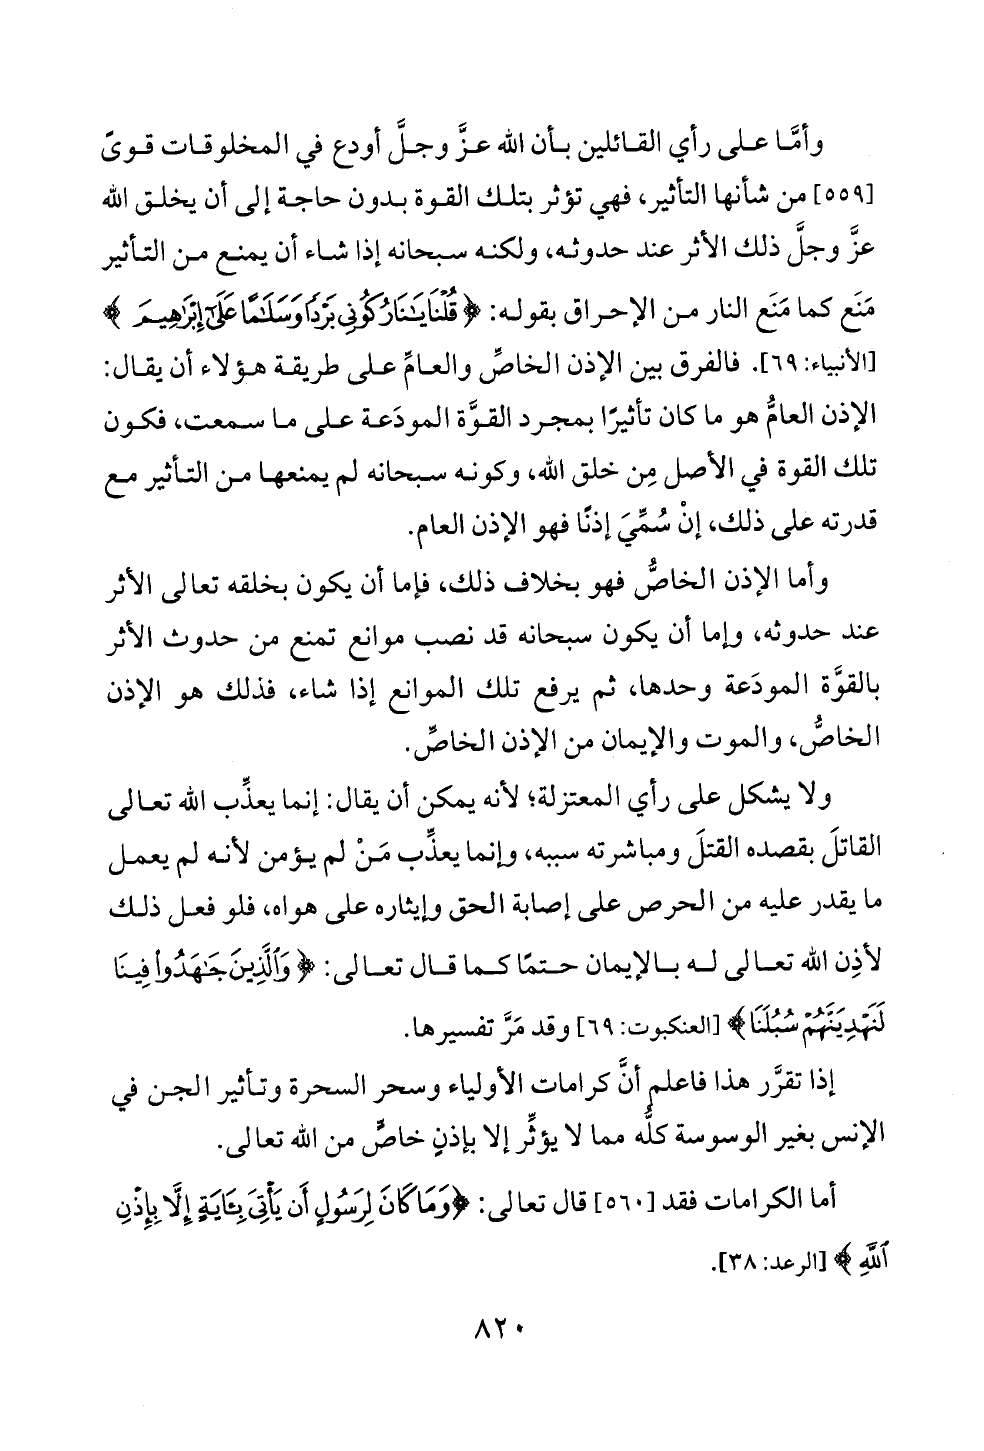 وأمَّا على رأي القائلين بأن الله عزَّ وجلَّ أودع في المخلوقات قوىً
[٥٥٩] من شأنها التأثير، فهي تؤثر بتلك القوة بدون حاجة إلى أن يخلق الله
عزَّ وجلَّ ذلك الأثر عند حدوثه، ولكنه سبحانه إذا شاء أن يمنع من التأثير
مَنَع كما مَنَع النار من الإحراق بقوله: ﴿قُلْنَا يَٰنَارُ كُونِي بَرْدًا وَسَلَٰمًا عَلَىٰٓ إِبْرَٰهِيمَ﴾
[الأنبياء: ٦٩]. فالفرق بين الإذن الخاصِّ والعامِّ على طريقة هؤلاء أن يقال:
الإذن العامُّ هو ما كان تأثيرًا بمجرد القوَّة المودَعة على ما سمعت، فكون
تلك القوة في الأصل مِن خلق الله، وكونه سبحانه لم يمنعها من التأثير مع
قدرته على ذلك، إنْ سُمِّيَ إذنًا فهو الإذن العام.
وأما الإذن الخاصُّ فهو بخلاف ذلك، فإما أن يكون بخلقه تعالى الأثر
عند حدوثه، وإما أن يكون سبحانه قد نصب موانع تمنع من حدوث الأثر
بالقوَّة المودَعة وحدها، ثم يرفع تلك الموانع إذا شاء، فذلك هو الإذن
الخاصُّ، والموت والإيمان من الإذن الخاصِّ.
ولا يشكل على رأي المعتزلة؛ لأنه يمكن أن يقال: إنما يعذِّب الله تعالى
القاتلَ بقصده القتلَ ومباشرته سببه، وإنما يعذِّب مَنْ لم يؤمن لأنه لم يعمل
ما يقدر عليه من الحرص على إصابة الحق وإيثاره على هواه، فلو فعل ذلك
لأذِن الله تعالى له بالإيمان حتمًا كما قال تعالى: ﴿وَٱلَّذِينَ جَٰهَدُوا۟ فِينَا
لَنَهْدِيَنَّهُمْ سُبُلَنَا﴾ [العنكبوت: ٦٩] وقد مَرَّ تفسيرها.
إذا تقرَّر هذا فاعلم أنَّ كرامات الأولياء وسحر السحرة وتأثير الجن في
الإنس بغير الوسوسة كلُّه مما لا يؤثِّر إلا بإذنٍ خاصٍّ من الله تعالى.
أما الكرامات فقد [٥٦٠] قال تعالى: ﴿وَمَا كَانَ لِرَسُولٍ أَن يَأْتِىَ بِـَٔايَةٍ إِلَّا بِإِذْنِ
ٱللَّهِ﴾ [الرعد: ٣٨].
٨٢٠